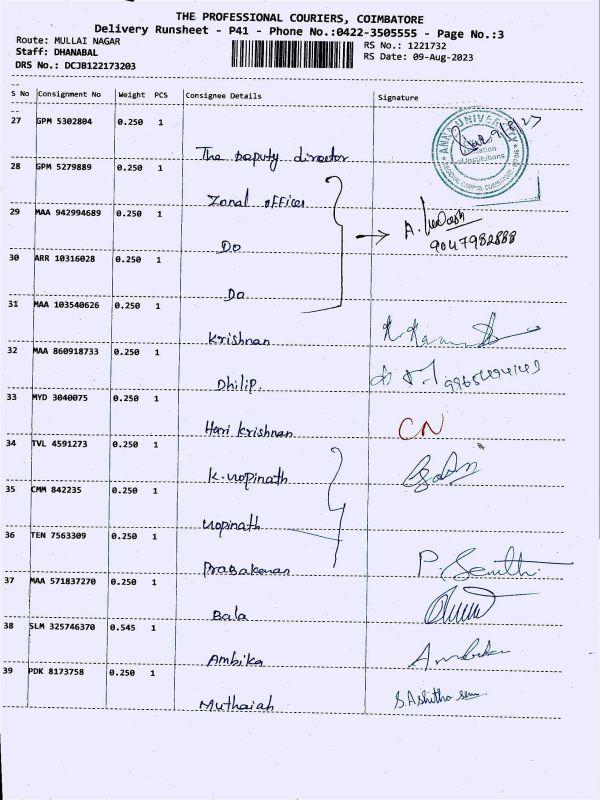 THE PROFESSIONAL COURIERS, COIMBATORE
Delivery Runsheet - P41 - Phone No.:0422-3505555 - Page No.:3
Route: MULLAI NAGAR
Staff: DHANABAL
DRS No.: DCJB122173203
RS No.: 1221732
RS Date: 09-Aug-2023
S No Consignment No Weight PCS Consignee Details Signature
27 GPM 5302804 0.250 1
The Deputy director
ANNA UNIVERSITY
of Institutions
28 GPM 5279889 0.250 1
Zonal officer
29 MAA 942994689 0.250 1
Do
9047982888
30 ARR 10316028 0.250 1
Do
31 MAA 103540626 0.250 1
Krishnan
32 MAA 860918733 0.250 1
Dhilip
33 MYD 3040075 0.250 1
Hari krishnan CN
34 TVL 4591273 0.250 1
K. Gopinath
35 CMM 842235 0.250 1
Gopinath
36 TEN 7563309 0.250 1
Prabakaran
37 MAA 571837270 0.250 1
Bala
38 SLM 325746370 0.545 1
Ambika Ambika
39 PDK 8173758 0.250 1
Muthaiah